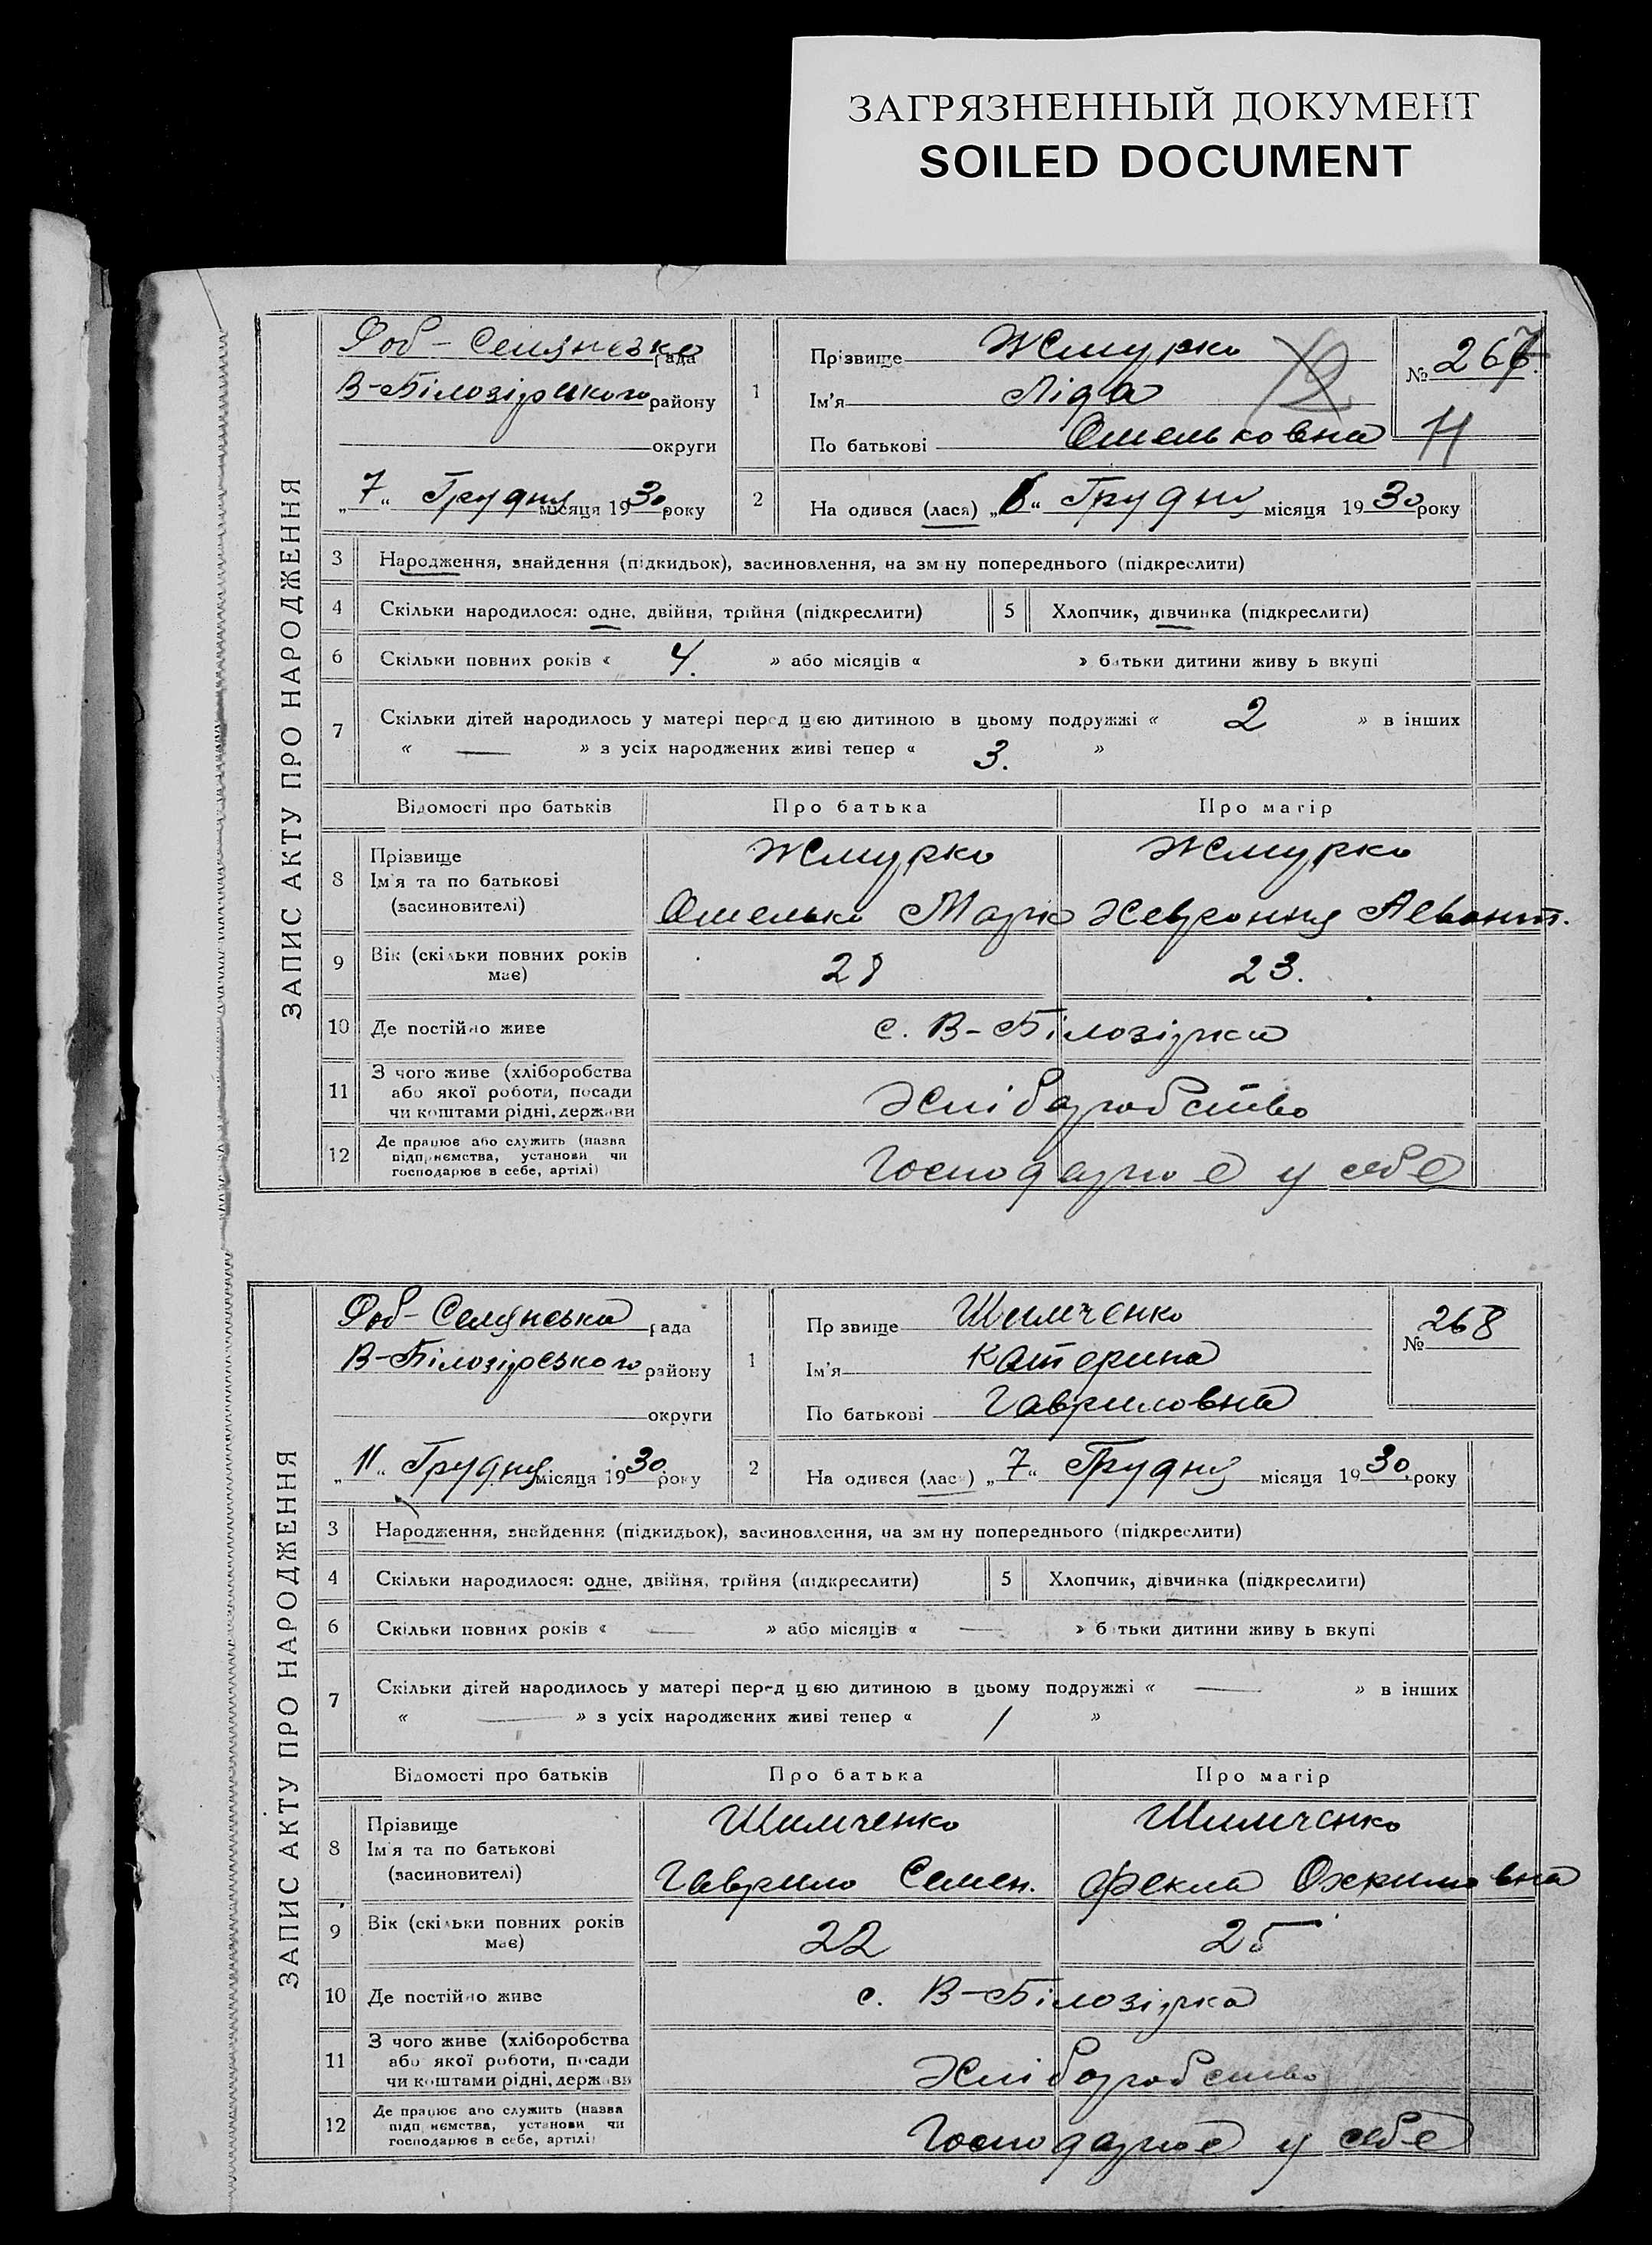 ЗАГРЯЗНЕННЫЙ ДОКУМЕНТ
SOILED DOCUMENT
ЗАПИС АКТУ ПРО НАРОДЖЕННЯ
Роб-Селянська рада
В-Білозірського району
округи
„7“ Грудня місяця 1930 року
1
Прізвище Жмурко
Ім'я Ліда
По батькові Омельковна
№ 267
12
11
2
На одився (лася) „6“ Грудня місяця 1930 року
3 Народження, знайдення (підкидьок), засиновлення, на зм ну попереднього (підкреслити)
4 Скільки народилося: одне, двійня, трійня (підкреслити) 5 Хлопчик, дівчинка (підкреслити)
6 Скільки повних років « 4. » або місяців « » батьки дитини живу ь вкупі
7 Скільки дітей народилось у матері перед цією дитиною в цьому подружжі « 2 » в інших
« — » з усіх народжених живі тепер « 3. »
Відомості про батьків Про батька Про матір
8 Прізвище Жмурко Жмурко
Ім'я та по батькові
(засиновителі) Омелько Марк Хевронія
9 Вік (скільки повних років має) 28 23.
10 Де постійно живе с. В-Білозірка
11 З чого живе (хліборобства
або якої роботи, посади
чи коштами рідні, держави Хліборобство
12 Де працює або служить (назва
підприємства, установи чи
господарює в себе, артілі) Господарює у себе
ЗАПИС АКТУ ПРО НАРОДЖЕННЯ
Роб-Селянська рада
В-Білозірського району
округи
„11“ Грудня місяця 1930 року
1
Пр звище Шимченко
Ім'я Катерина
По батькові Гавриловна
№ 268
2
На одився (лася) „7“ Грудня місяця 1930 року
3 Народження, знайдення (підкидьок), засиновлення, на зм ну попереднього (підкреслити)
4 Скільки народилося: одне, двійня, трійня (підкреслити) 5 Хлопчик, дівчинка (підкреслити)
6 Скільки повних років « — » або місяців « — » б тьки дитини живу ь вкупі
7 Скільки дітей народилось у матері перед цією дитиною в цьому подружжі « — » в інших
« — » з усіх народжених живі тепер « 1 »
Відомості про батьків Про батька Про матір
8 Прізвище Шимченко Шимченко
Ім'я та по батькові
(засиновителі) Гаврило Семен. Фекла Охримовна
9 Вік (скільки повних років має) 22 25
10 Де постійно живе с. В-Білозірка
11 З чого живе (хліборобства
або якої роботи, посади
чи коштами рідні, держави Хліборобство
12 Де працює або служить (назва
підп иємства, установи чи
господарює в себе, артілі) Господарює у себе